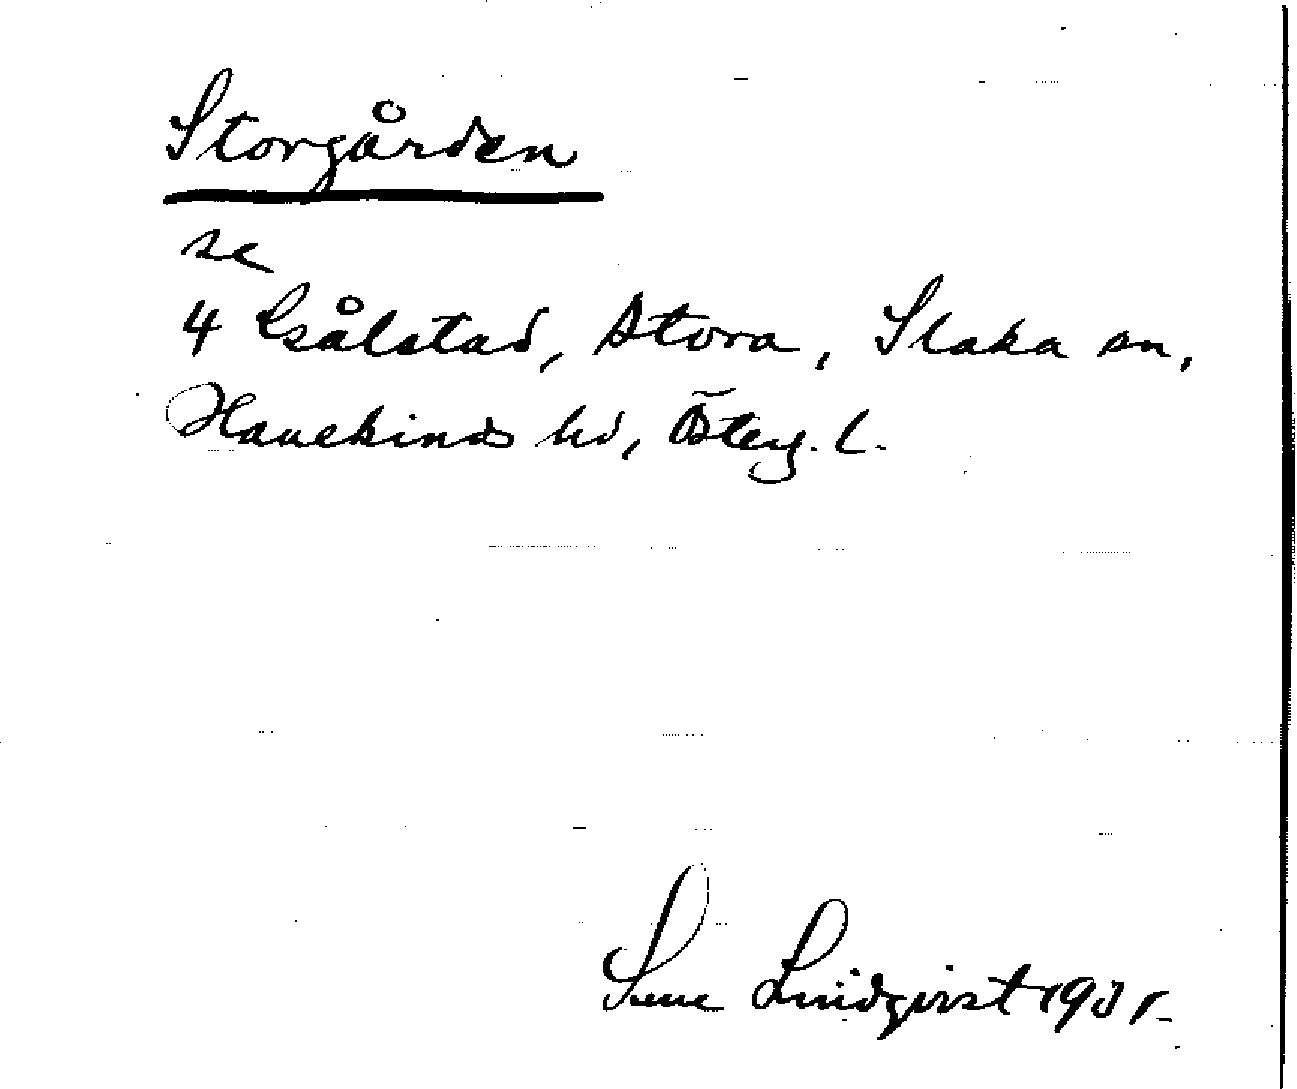 Storgården
se
4 Gålstad, Stora, Slaka sn,
Hanekinds hd, Österg. L.
Sune Lindqvist